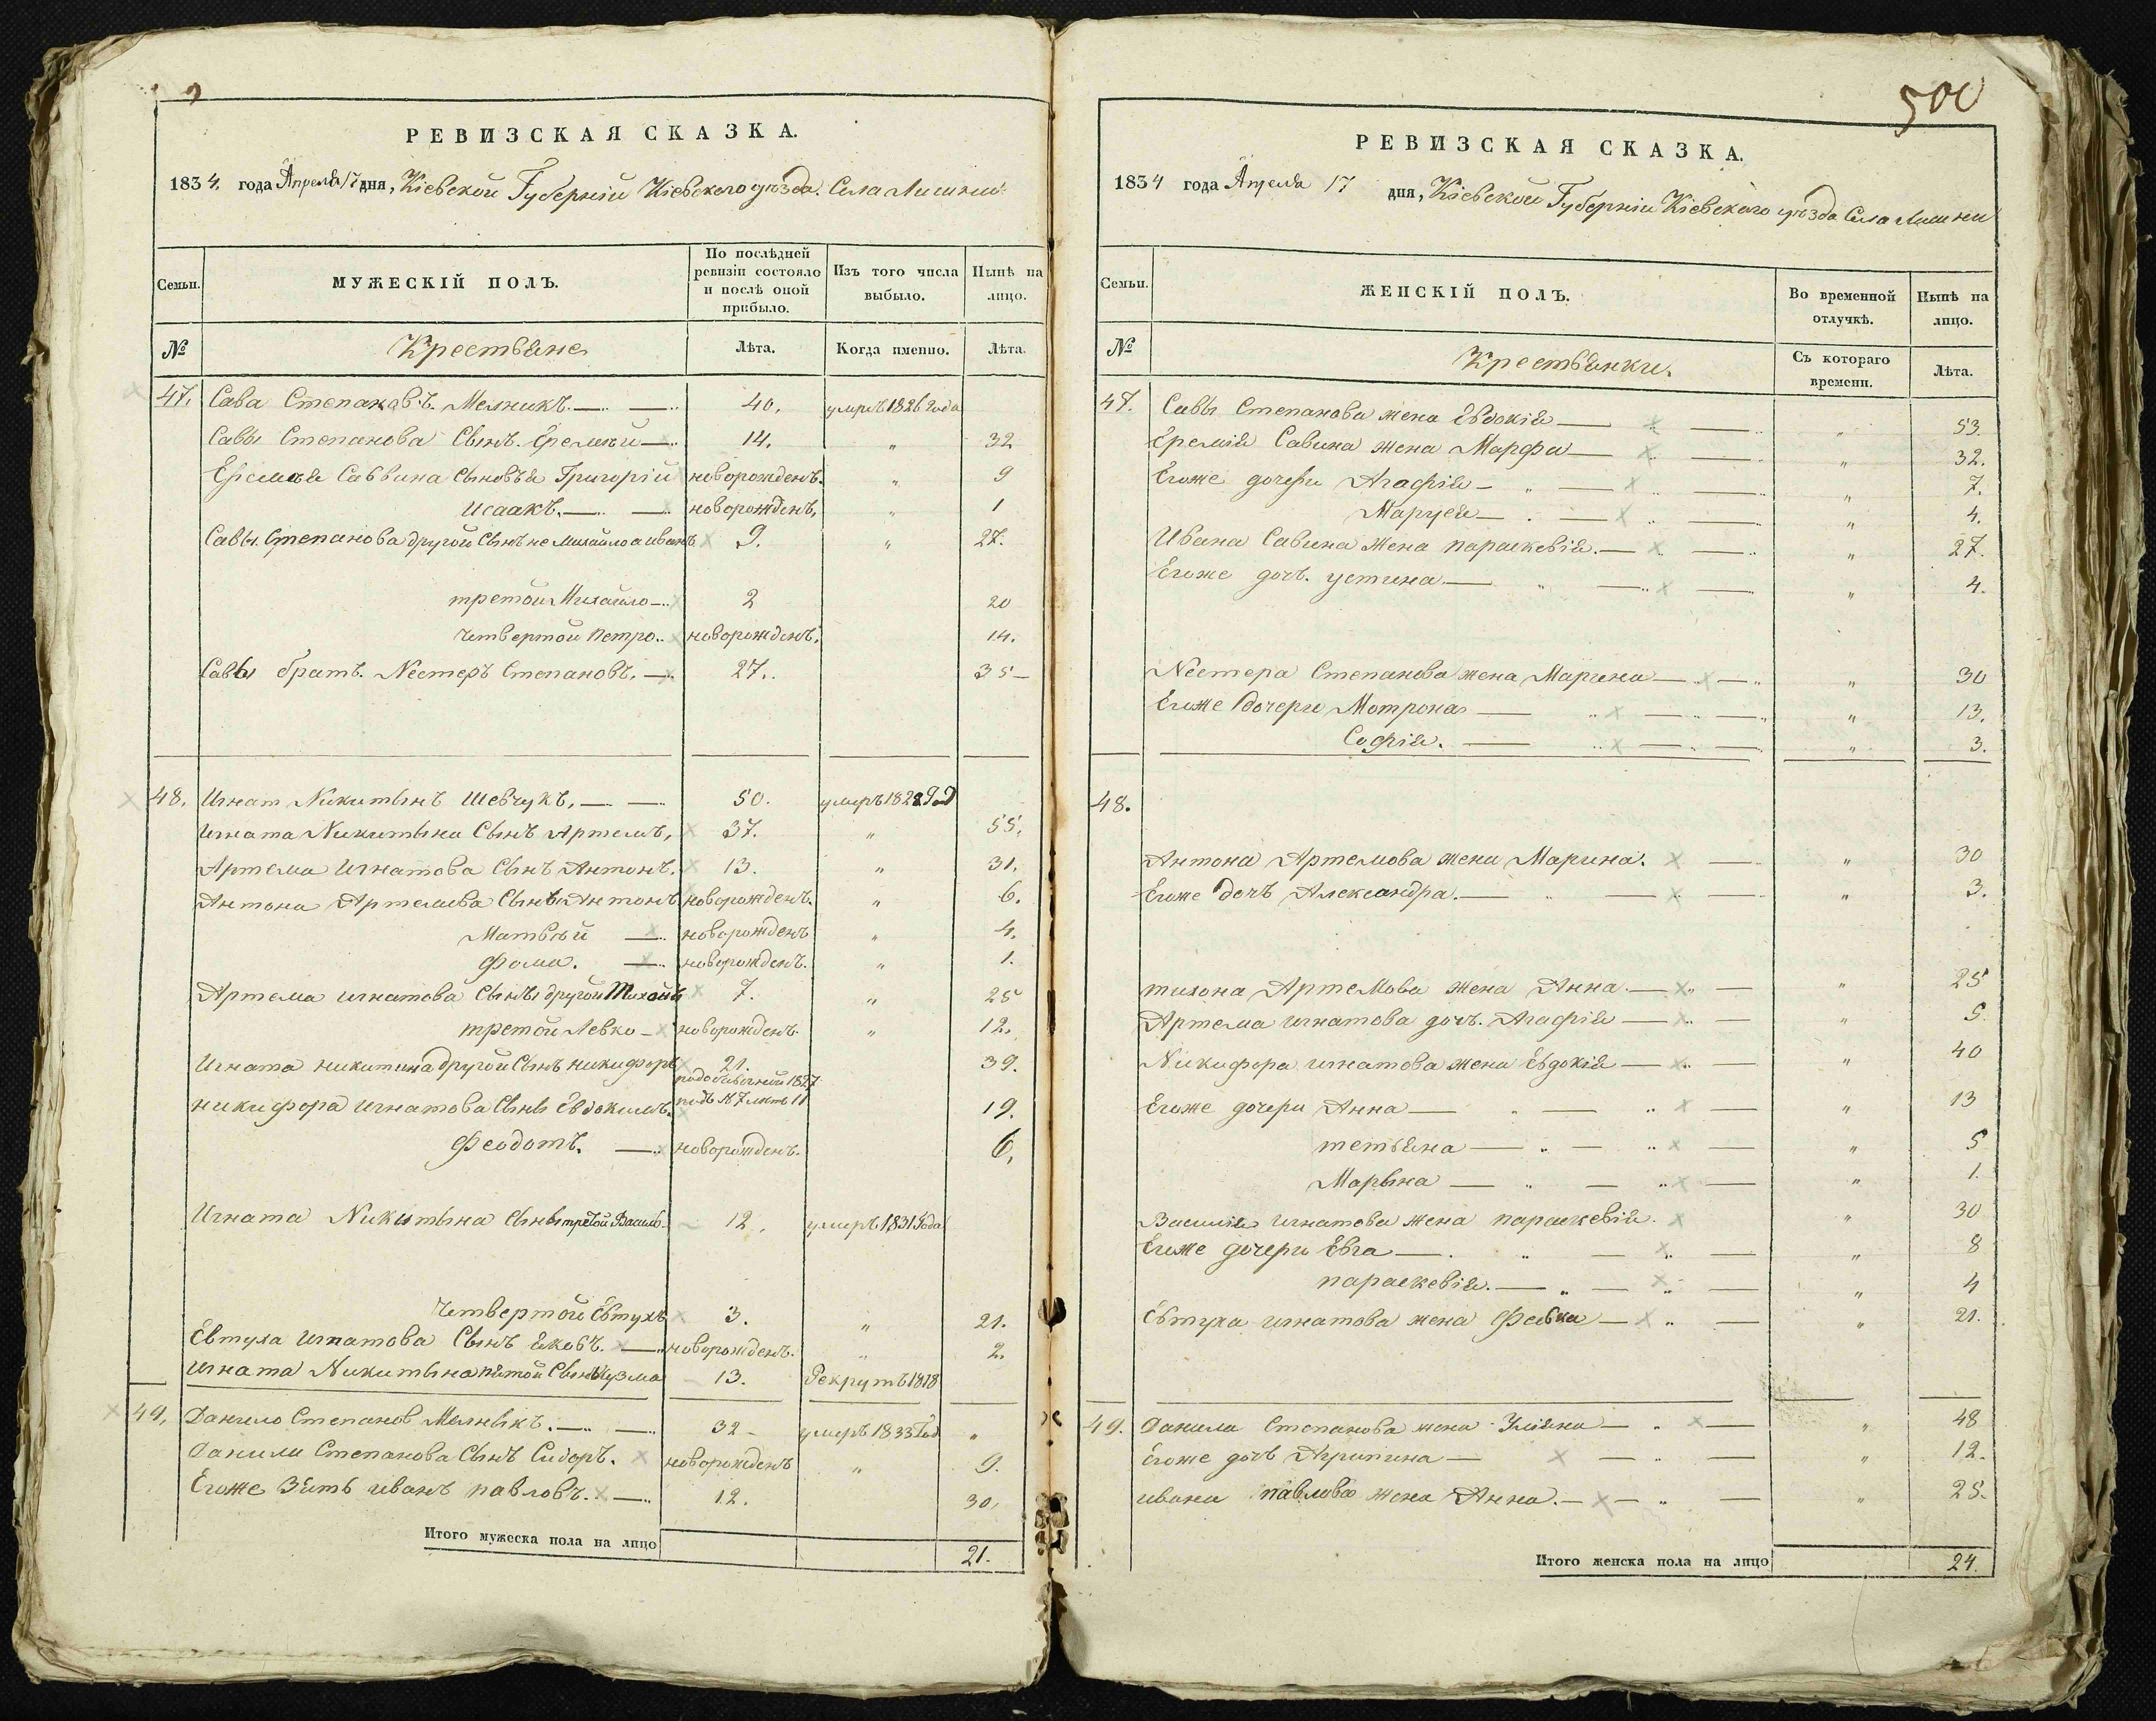 РЕВИЗСКАЯ СКАЗКА.
1834. года Апреля 17 дня, Кіевской Губерніи Кіевского уѣзда. Села Лишни
Семьи. МУЖЕСКІЙ ПОЛЪ. По послѣдней ревизіи состояло и послѣ оной прибыло. Изъ того числа выбыло. Нынѣ на лицо.
№ Крестьяне Лѣта. Когда имянно. Лѣта.
47. Сава Степановъ Мелникъ. 40. умръ 1826 года
Савы Степанова Сынъ Еремѣй 14. " 32
Еремѣя Саввина Сыновья Григорій новорожденъ. " 9
Исаакъ. новорожденъ. " 1
Савы Степанова другой Сынъ не Михайло а иванъ 9. " 27.
третой Михайло 2 20
четвертой Петро новорожденъ. 14.
Савы братъ. Nестеръ Степановъ. 27. 35
48. Игнат Никитынъ Шевчукъ. 50. умеръ 1828 Год
Игната Никитына Сынъ Артемъ, 37. " 55.
Артема Игнатова Сынъ Антонъ. 13. " 31.
Антона Артемова Сыны Антонъ новорожденъ. " 6.
Матвѣй новорожденъ " 4.
Фома. новорожденъ. " 1.
Артема игнатова Сынъ другой Тихонъ 7. " 25
третой Левко новорожденъ. " 12.
Игната никитина другой Сынъ никифоръ 21. 39.
никифора игнатова Сынъ Евдокимъ. 1827 подъ № 7 лѣтъ 11 19.
Феодотъ. новорожденъ. 6.
Игната Никитына Сынъ третой Василь. 12. умеръ 1831 Года
Четвертой Евтухъ 3. " 21.
Евтуха Игнатова Сынъ яковъ. новорожденъ. " 2.
Игната Никитына пятой Сынъ Кузма 13. Рекрутъ 1818
49. Данило Степанов Мелныкъ. 32 умеръ 1833 Год "
Данила Степанова Сынъ Сидоръ. новорожденъ " 9.
Егоже Зять иванъ павловъ. 12. 30.
Итого мужеска пола на лицо 21.
500
РЕВИЗСКАЯ СКАЗКА.
1834 года Апреля 17 дня, Кіевской Губерніи Кіевского уѣзда Села Лишни
Семьи. ЖЕНСКІЙ ПОЛЪ. Во временной отлучкѣ. Нынѣ на лицо.
№ Крестьянки. Съ котораго времени. Лѣта.
47. Савы Степанова жена Евдокія " 53.
Еремія Савина жена Марфа " 32.
Егоже дочери Агафія " 7.
Маруся " 4.
Ивана Савина жена параскевія. " 27.
Егоже дочъ. устина " 4.
Nестера Степанова жена Марина " 30
Егоже дочери Мотрона " 13.
Софія. " 3.
48.
Антона Артемова жена Марина. " 30
Егоже дочъ Александра. " 3.
тихона Артемова жена Анна. " 25
Артема игнатова дочъ. Агафія " 5
Никифора игнатова жена Евдокія " 40
Егоже дочери Анна " 13
тетьяна " 5
Марына " 1.
Василія игнатова жена параскевія. " 30
Егоже дочери Евга " 8
параскевія. " 4
Евтуха игнатова жена Февка " 21.
49. Данила Степанова жена Уляна " 48
Егоже дочъ Агрипина " 12.
ивана павлова жена Анна. " 25.
Итого женска пола на лицо 24.